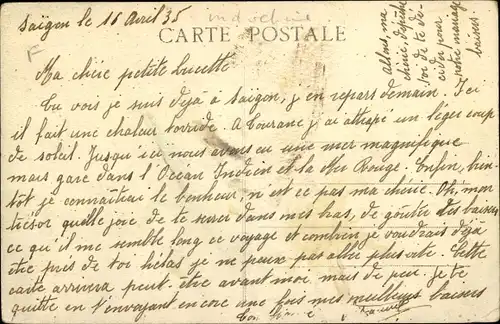 Saïgon le 16 Avril 35
Indochine
CARTE POSTALE
F
Ma chère petite Lucette
Tu vois je suis déjà à Saïgon, j'en repars demain. Ici
il fait une chaleur torride. A Tourane j'ai attrapé un léger coup
de soleil. Jusqu'ici nous avons eu une mer magnifique
mais gare dans l'Océan Indien et la Mer Rouge. Enfin, bien-
tôt je connaîtrai le bonheur, n'est ce pas ma chérie. Oh, mon
trésor quelle joie de te serrer dans mes bras, de goûter des baisers
ce qu'il me semble long ce voyage et combien je voudrais déjà
être près de toi hélas je ne peux pas aller plus vite. Cette
carte arrivera peut-être avant moi, mais de peu. Je te
quitte en t'envoyant encore une fois mes meilleurs baisers
Ton
Allons, ma
chérie, dépêche
toi de te dé-
cider pour
notre mariage
baisers